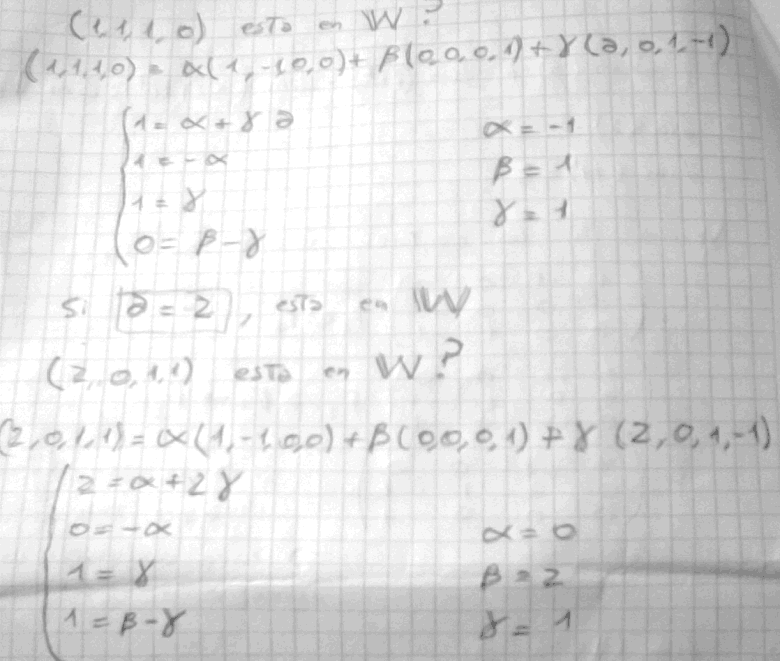 (1,1,1,0) esta en W?
(1,1,1,0) = α(1,-1,0,0) + β(0,0,0,1) + γ(a,0,1,-1)
1 = α + γ a
α = -1
1 = -α
β = 1
1 = γ
γ = 1
0 = β - γ
Si a = 2, esta en W
(2,0,1,1) esta en W?
(2,0,1,1) = α(1,-1,0,0) + β(0,0,0,1) + γ (2,0,1,-1)
2 = α + 2γ
0 = -α
α = 0
1 = γ
β = 2
1 = β - γ
γ = 1